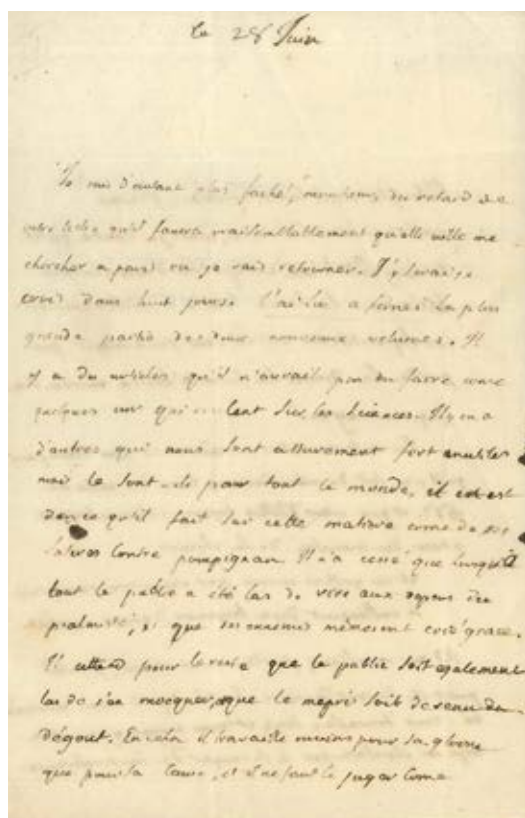 le 28 Juin
Je suis d'autant plus faché, monsieur, du retard de
votre lettre qu'il faudra vraisemblablement qu'elle aille me
chercher a paris ou je vais retourner. J'y serai, je
crois dans huit jours. J'ai lu a ferney la plus
grande partie des deux nouveaux volumes. Il
y a des articles qu'il n'aurait pas du faire comme
quelques uns qui roulent sur les sciences. Il y en a
d'autres qui nous sont assurement fort
mais le sont-ils pour tout le monde, il en est
de ce qu'il fait sur cette matiere comme de ses
satires contre pompignan. Il n'a cessé que lorsque
tout le public a été las de rire aux depens du
psalmiste, et que ses ennemis mêmes ont crié grace.
Il attend pour le reste que le public soit egalement
las de s'en mocquer, et que le mepris soit devenu du
dégout. En cela il travaille moins pour sa gloire
que pour la cause, et il ne faut le juger comme